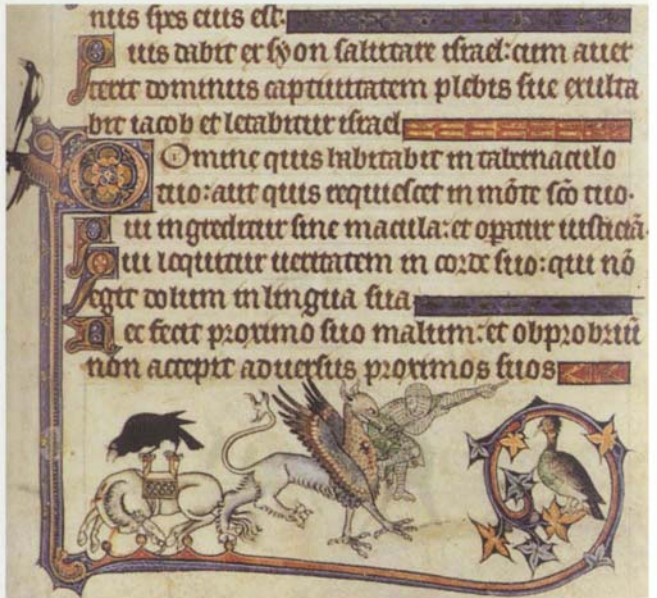 nus spes eius est.
Quis dabit ex syon salutare israel: cum auer
terit dominus captiuitatem plebis sue exulta
bit iacob et letabitur israel
Domine quis habitabit in tabernaculo
tuo: aut quis requiescet in mo̅te sc̅o tuo.
Qui ingreditur sine macula: et op̅atur iusticia̅.
Qui loquitur ueritatem in corde suo: qui no̅
egit dolum in lingua sua
Nec fecit proximo suo malum: et obprobriu̅
non accepit aduersus proximos suos